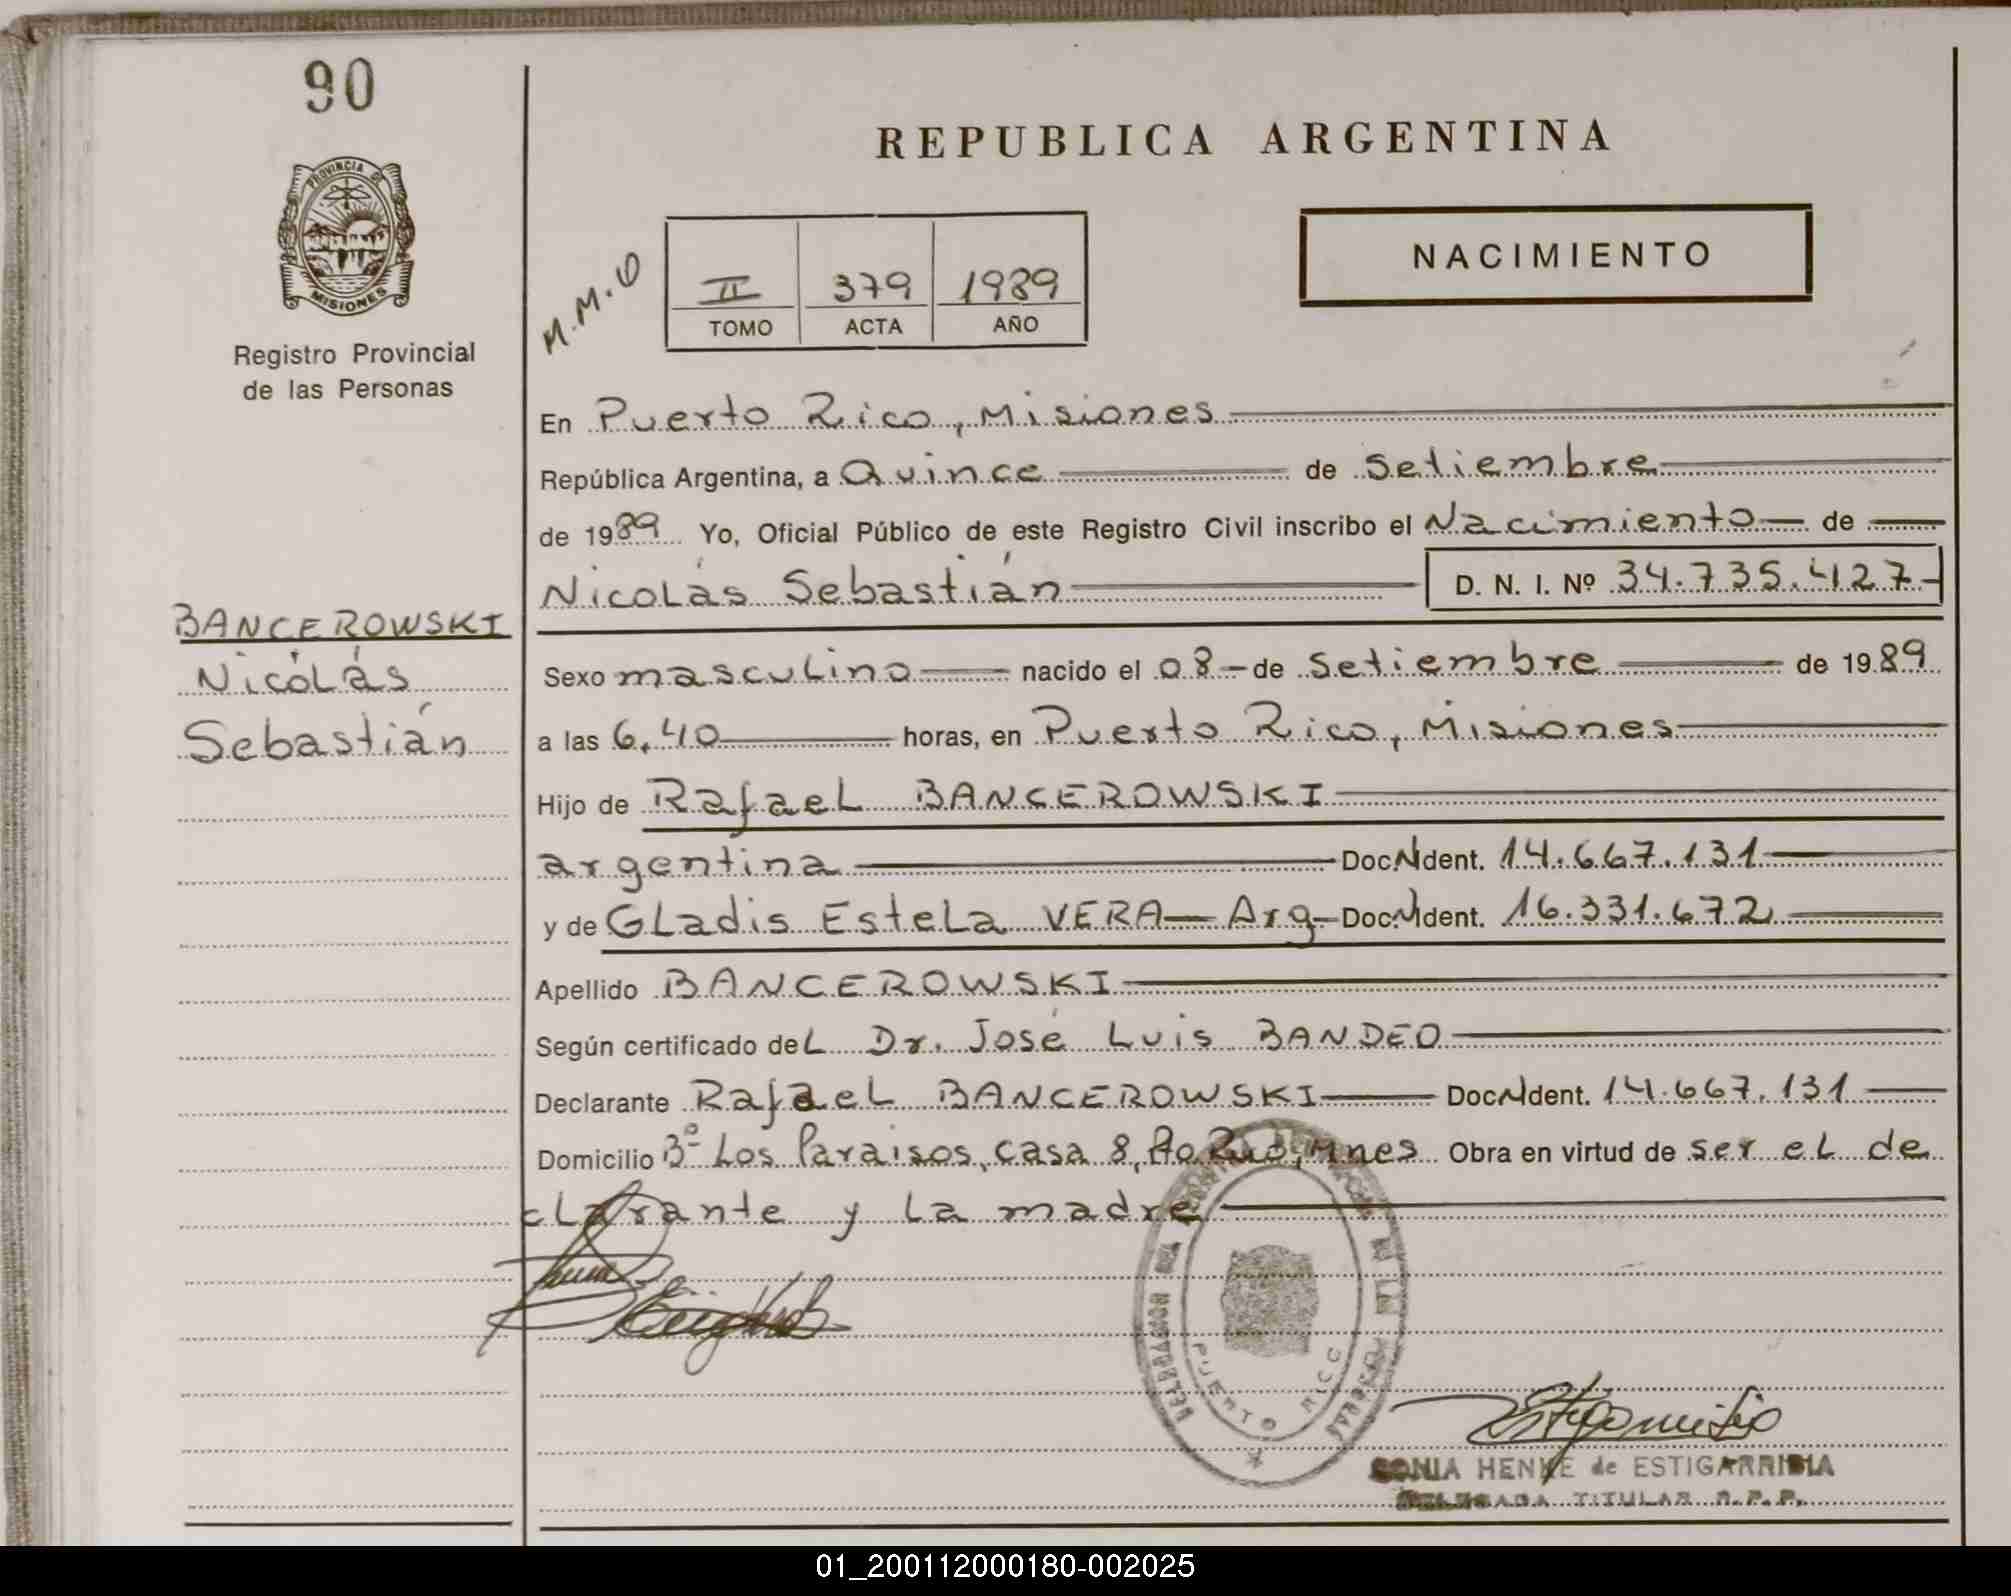 90
PROVINCIA DE
MISIONES
Registro Provincial
de las Personas
BANCEROWSKI
Nicolás
Sebastián
REPUBLICA ARGENTINA
M.M.O
II 379 1989
TOMO ACTA AÑO
NACIMIENTO
En Puerto Rico, Misiones
República Argentina, a Quince de setiembre
de 1989 Yo, Oficial Público de este Registro Civil inscribo el Nacimiento de
Nicolás Sebastián D. N. I. Nº 34.735.427
Sexo masculino nacido el 08 de setiembre de 1989
a las 6,40 horas, en Puerto Rico, Misiones
Hijo de Rafael BANCEROWSKI
argentina Doc.N Ident. 14.667.131
y de Gladis Estela VERA Arg Doc.N Ident. 16.331.672
Apellido BANCEROWSKI
Según certificado del Dr. José Luis BANDEO
Declarante Rafael BANCEROWSKI Doc.N Ident. 14.667.131
Domicilio Bº Los Paraisos, casa 8, Pto Rico, Mnes Obra en virtud de ser el de
clarante y la madre
PUERTO RICO
SONIA HENKE de ESTIGARRIBIA
DELEGADA TITULAR R.P.P.
01_200112000180-002025